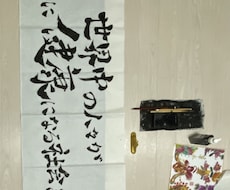 世界中の人々が
に健康になる社会